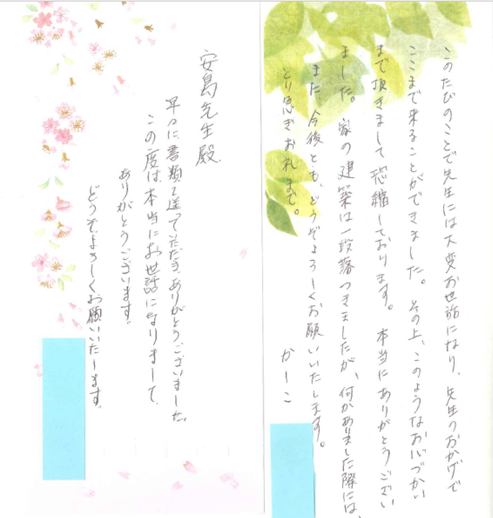 このたびのことで先生には大変お世話になり、先生のおかげで
ここまで来ることができました。その上、このようなお心づかい
まで頂きまして恐縮しております。本当にありがとうござい
ました。家の建築は一段落つきましたが、何かありました際には、
また今後とも、どうぞよろしくお願いいたします。
とり急ぎお礼まで。
かしこ
安島先生殿
早々に書類を送っていただき、ありがとうございました。
この度は本当にお世話になりまして、
ありがとうございます。
どうぞよろしくお願いいたします。